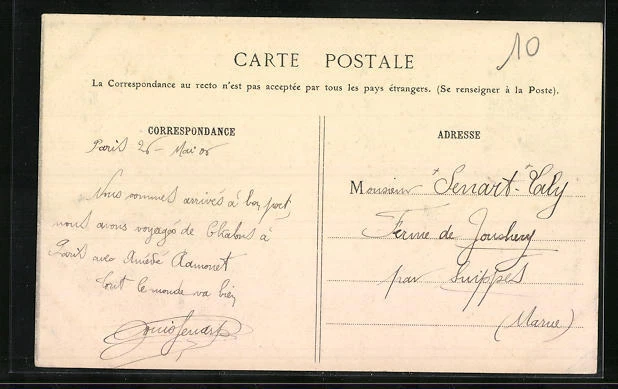 10
CARTE POSTALE
La Correspondance au recto n'est pas acceptée par tous les pays étrangers. (Se renseigner à la Poste).
CORRESPONDANCE
ADRESSE
Paris 26 - Mai 06
Monsieur Senart-Taly
Nous sommes arrivés à bon port
nous avons voyagés de Chalons à
Ferme de Jonchery
Paris avec Amédé Ramonet
par Suippes
Tout le monde va bien
(Marne)
Louis Senart